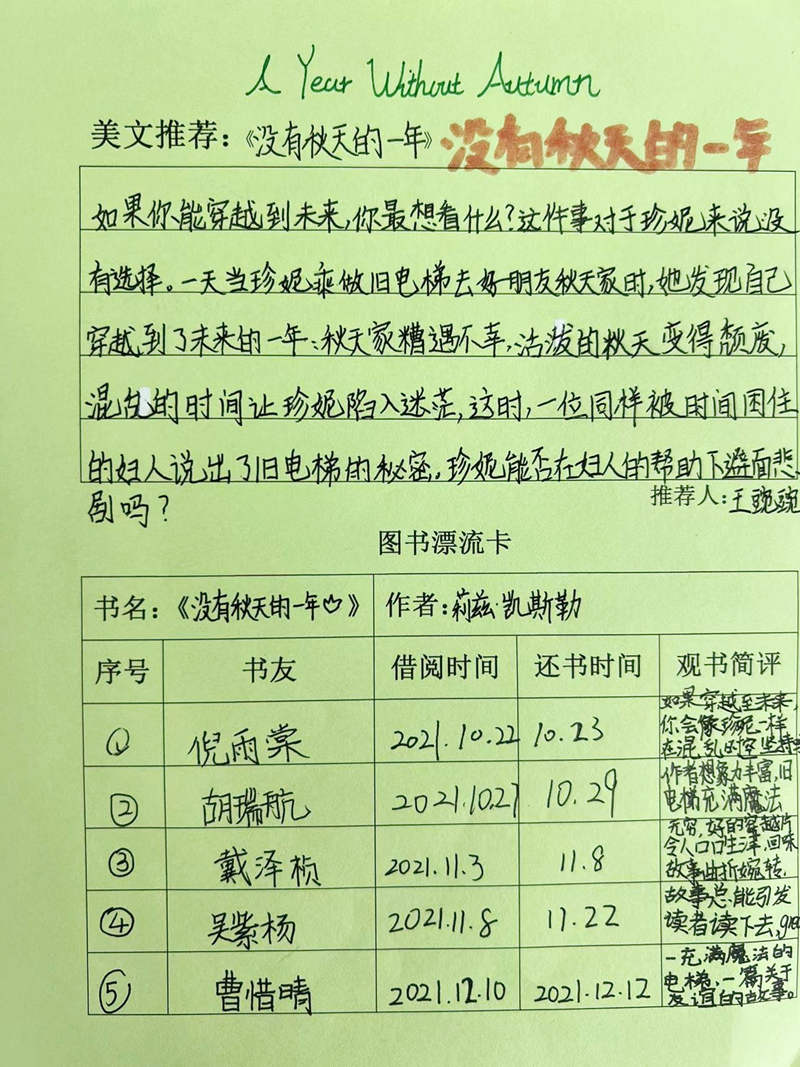 A Year Without Autumn
美文推荐：《没有秋天的一年》 没有秋天的一年
如果你能穿越到未来，你最想看什么？这件事对于珍妮来说没
有选择。一天当珍妮乘做旧电梯去好朋友秋天家时，她发现自己
穿越到了未来的一年：秋天家糟遇不幸，活泼的秋天变得颓废，
混乱的时间让珍妮陷入迷茫，这时，一位同样被时间困住
的妇人说出了旧电梯的秘密，珍妮能否在妇人的帮助下避面悲
剧吗？
推荐人：王豌豌
图书漂流卡
书名：《没有秋天的一年》 作者：莉兹·凯斯勒
序号 书友 借阅时间 还书时间 观书简评
① 倪雨棠 2021.10.22 10.23 如果穿越至未来，
你会像珍妮一样
在混乱时空坚持
② 胡瑞航 2021.10.27 10.29 作者想象力丰富，旧
电梯充满魔法
③ 戴泽桢 2021.11.3 11.8 无穷，好的穿越片
令人口口生津，回味
故事曲折婉转.
④ 吴紫杨 2021.11.8 11.22 故事总能引发
读者读下去，
⑤ 曹惜晴 2021.12.10 2021.12.12 一充满魔法的
电梯，一篇关于
友谊的故事。